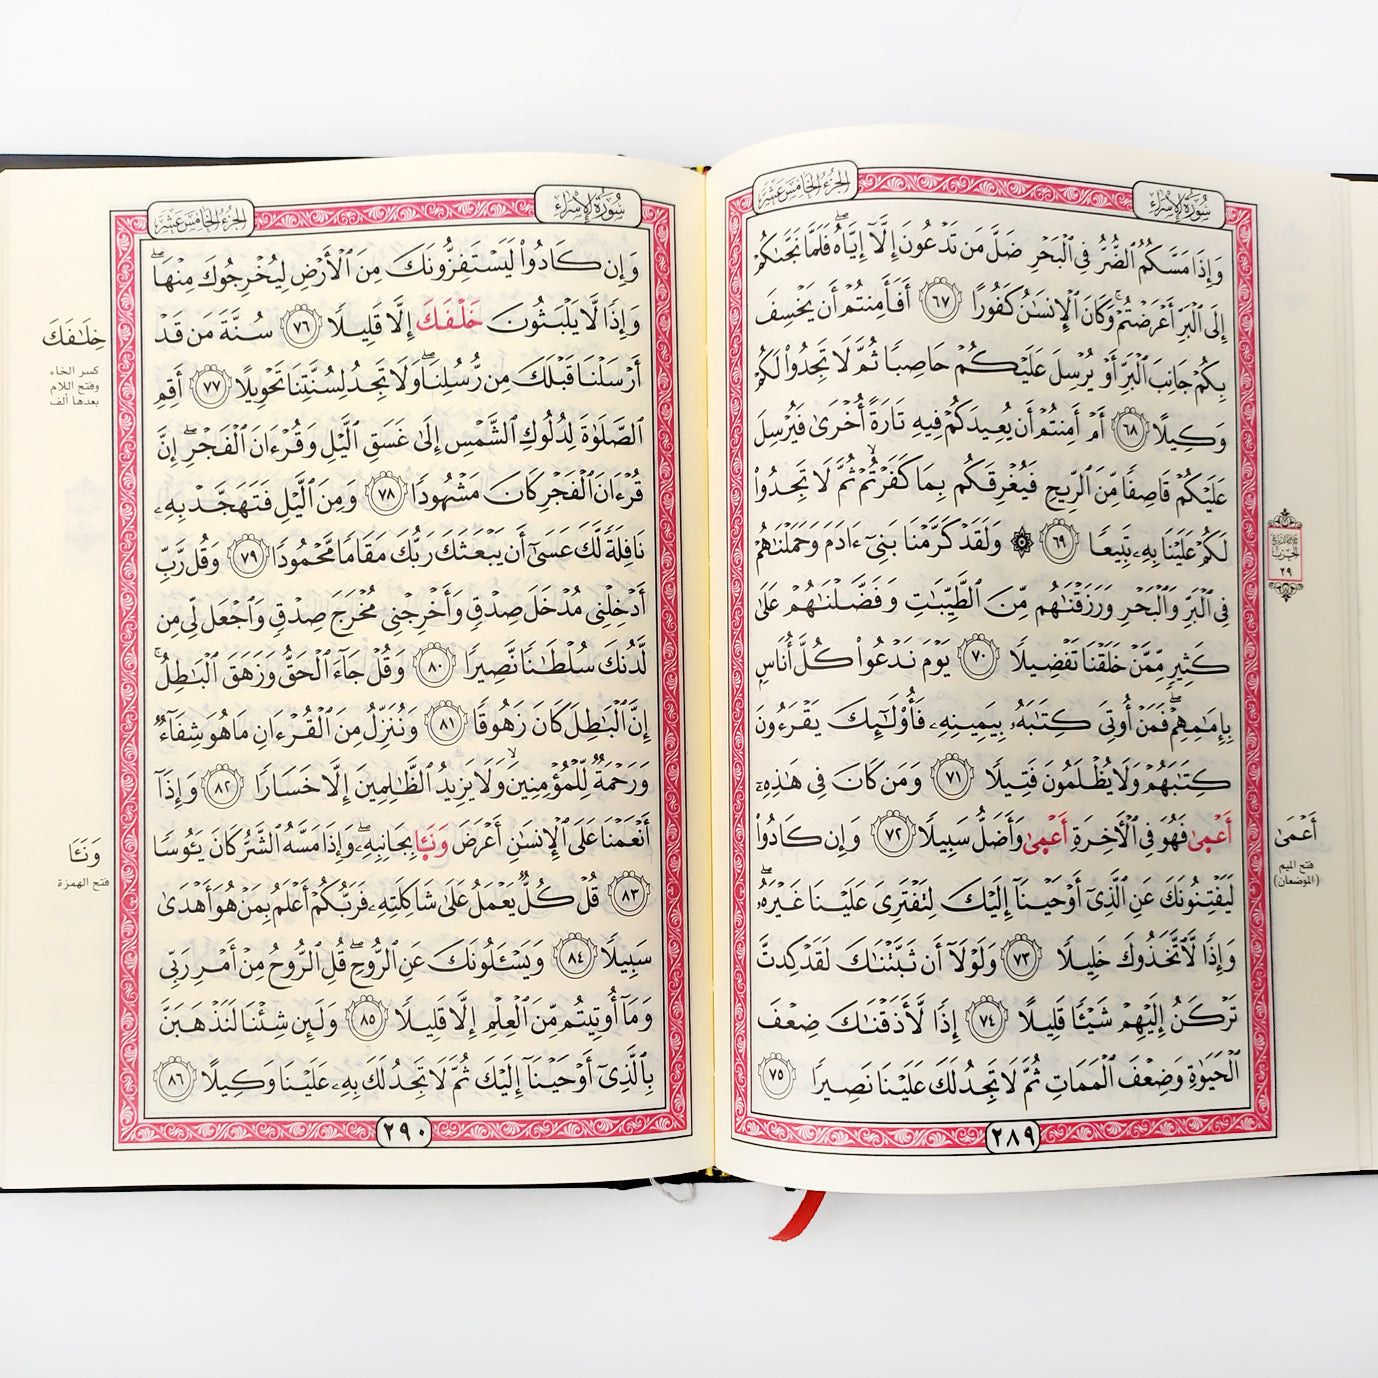 سُورَةُ الإِسْرَاء
الجزء الخامس عشر
وَإِذَا مَسَّكُمُ ٱلضُّرُّ فِي ٱلْبَحْرِ ضَلَّ مَن تَدْعُونَ إِلَّآ إِيَّاهُۖ فَلَمَّا نَجَّىٰكُمْ
إِلَى ٱلْبَرِّ أَعْرَضْتُمْۚ وَكَانَ ٱلْإِنسَٰنُ كَفُورًا ٦٧ أَفَأَمِنتُمْ أَن يَخْسِفَ
بِكُمْ جَانِبَ ٱلْبَرِّ أَوْ يُرْسِلَ عَلَيْكُمْ حَاصِبًا ثُمَّ لَا تَجِدُواْ لَكُمْ
وَكِيلًا ٦٨ أَمْ أَمِنتُمْ أَن يُعِيدَكُمْ فِيهِ تَارَةً أُخْرَىٰ فَيُرْسِلَ
عَلَيْكُمْ قَاصِفًا مِّنَ ٱلرِّيحِ فَيُغْرِقَكُم بِمَا كَفَرْتُمْ ثُمَّ لَا تَجِدُواْ
لَكُمْ عَلَيْنَا بِهِۦ تَبِيعًا ٦٩ ۞ وَلَقَدْ كَرَّمْنَا بَنِيٓ ءَادَمَ وَحَمَلْنَٰهُمْ
فِي ٱلْبَرِّ وَٱلْبَحْرِ وَرَزَقْنَٰهُم مِّنَ ٱلطَّيِّبَٰتِ وَفَضَّلْنَٰهُمْ عَلَىٰ
كَثِيرٍ مِّمَّنْ خَلَقْنَا تَفْضِيلًا ٧٠ يَوْمَ نَدْعُواْ كُلَّ أُنَاسٍۭ
بِإِمَٰمِهِمْۖ فَمَنْ أُوتِيَ كِتَٰبَهُۥ بِيَمِينِهِۦ فَأُوْلَٰٓئِكَ يَقْرَءُونَ
كِتَٰبَهُمْ وَلَا يُظْلَمُونَ فَتِيلًا ٧١ وَمَن كَانَ فِي هَٰذِهِۦٓ
أَعْمَىٰ فَهُوَ فِي ٱلْأٓخِرَةِ أَعْمَىٰ وَأَضَلُّ سَبِيلًا ٧٢ وَإِن كَادُواْ
لَيَفْتِنُونَكَ عَنِ ٱلَّذِيٓ أَوْحَيْنَآ إِلَيْكَ لِتَفْتَرِيَ عَلَيْنَا غَيْرَهُۥۖ
وَإِذًا لَّٱتَّخَذُوكَ خَلِيلًا ٧٣ وَلَوْلَآ أَن ثَبَّتْنَٰكَ لَقَدْ كِدتَّ
تَرْكَنُ إِلَيْهِمْ شَيْـًٔا قَلِيلًا ٧٤ إِذًا لَّأَذَقْنَٰكَ ضِعْفَ
ٱلْحَيَوٰةِ وَضِعْفَ ٱلْمَمَاتِ ثُمَّ لَا تَجِدُ لَكَ عَلَيْنَا نَصِيرًا ٧٥
٢٨٩
الحزب
٢٩
أَعْمَىٰ
فتح الميم
(الموضعان)
سُورَةُ الإِسْرَاء
الجزء الخامس عشر
وَإِن كَادُواْ لَيَسْتَفِزُّونَكَ مِنَ ٱلْأَرْضِ لِيُخْرِجُوكَ مِنْهَاۖ
وَإِذًا لَّا يَلْبَثُونَ خَلْفَكَ إِلَّا قَلِيلًا ٧٦ سُنَّةَ مَن قَدْ
أَرْسَلْنَا قَبْلَكَ مِن رُّسُلِنَاۖ وَلَا تَجِدُ لِسُنَّتِنَا تَحْوِيلًا ٧٧ أَقِمِ
ٱلصَّلَوٰةَ لِدُلُوكِ ٱلشَّمْسِ إِلَىٰ غَسَقِ ٱلَّيْلِ وَقُرْءَانَ ٱلْفَجْرِۖ إِنَّ
قُرْءَانَ ٱلْفَجْرِ كَانَ مَشْهُودًا ٧٨ وَمِنَ ٱلَّيْلِ فَتَهَجَّدْ بِهِۦ
نَافِلَةً لَّكَ عَسَىٰٓ أَن يَبْعَثَكَ رَبُّكَ مَقَامًا مَّحْمُودًا ٧٩ وَقُل رَّبِّ
أَدْخِلْنِي مُدْخَلَ صِدْقٍ وَأَخْرِجْنِي مُخْرَجَ صِدْقٍ وَٱجْعَل لِّي مِن
لَّدُنكَ سُلْطَٰنًا نَّصِيرًا ٨٠ وَقُلْ جَآءَ ٱلْحَقُّ وَزَهَقَ ٱلْبَٰطِلُۚ
إِنَّ ٱلْبَٰطِلَ كَانَ زَهُوقًا ٨١ وَنُنَزِّلُ مِنَ ٱلْقُرْءَانِ مَا هُوَ شِفَآءٌ
وَرَحْمَةٌ لِّلْمُؤْمِنِينَ وَلَا يَزِيدُ ٱلظَّٰلِمِينَ إِلَّا خَسَارًا ٨٢ وَإِذَآ
أَنْعَمْنَا عَلَى ٱلْإِنسَٰنِ أَعْرَضَ وَنَـَٔا بِجَانِبِهِۦۖ وَإِذَا مَسَّهُ ٱلشَّرُّ كَانَ يَـُٔوسًا
٨٣ قُلْ كُلٌّ يَعْمَلُ عَلَىٰ شَاكِلَتِهِۦ فَرَبُّكُمْ أَعْلَمُ بِمَنْ هُوَ أَهْدَىٰ
سَبِيلًا ٨٤ وَيَسْـَٔلُونَكَ عَنِ ٱلرُّوحِۖ قُلِ ٱلرُّوحُ مِنْ أَمْرِ رَبِّي
وَمَآ أُوتِيتُم مِّنَ ٱلْعِلْمِ إِلَّا قَلِيلًا ٨٥ وَلَئِن شِئْنَا لَنَذْهَبَنَّ
بِٱلَّذِيٓ أَوْحَيْنَآ إِلَيْكَ ثُمَّ لَا تَجِدُ لَكَ بِهِۦ عَلَيْنَا وَكِيلًا ٨٦
٢٩٠
خِلَٰفَكَ
كسر الخاء
وفتح اللام
بعدها ألف
وَنَـَٔا
فتح الهمزة